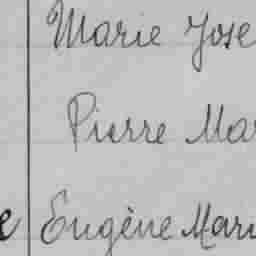 Marie Jose
Pierre Mar
e Eugène Mari